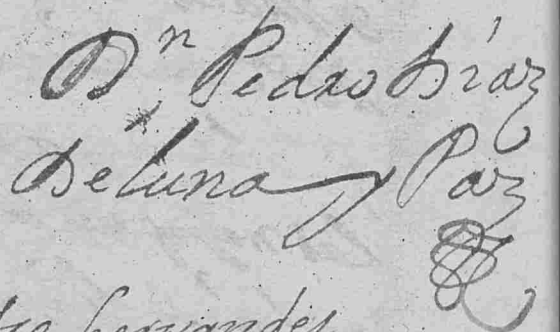 Dn Pedro Díaz
Deluna y Paz
Hernandes